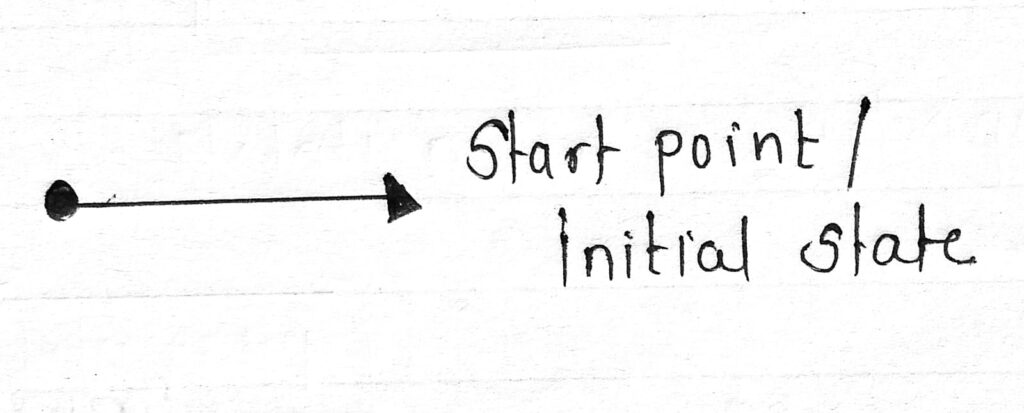 Start point /
Initial state